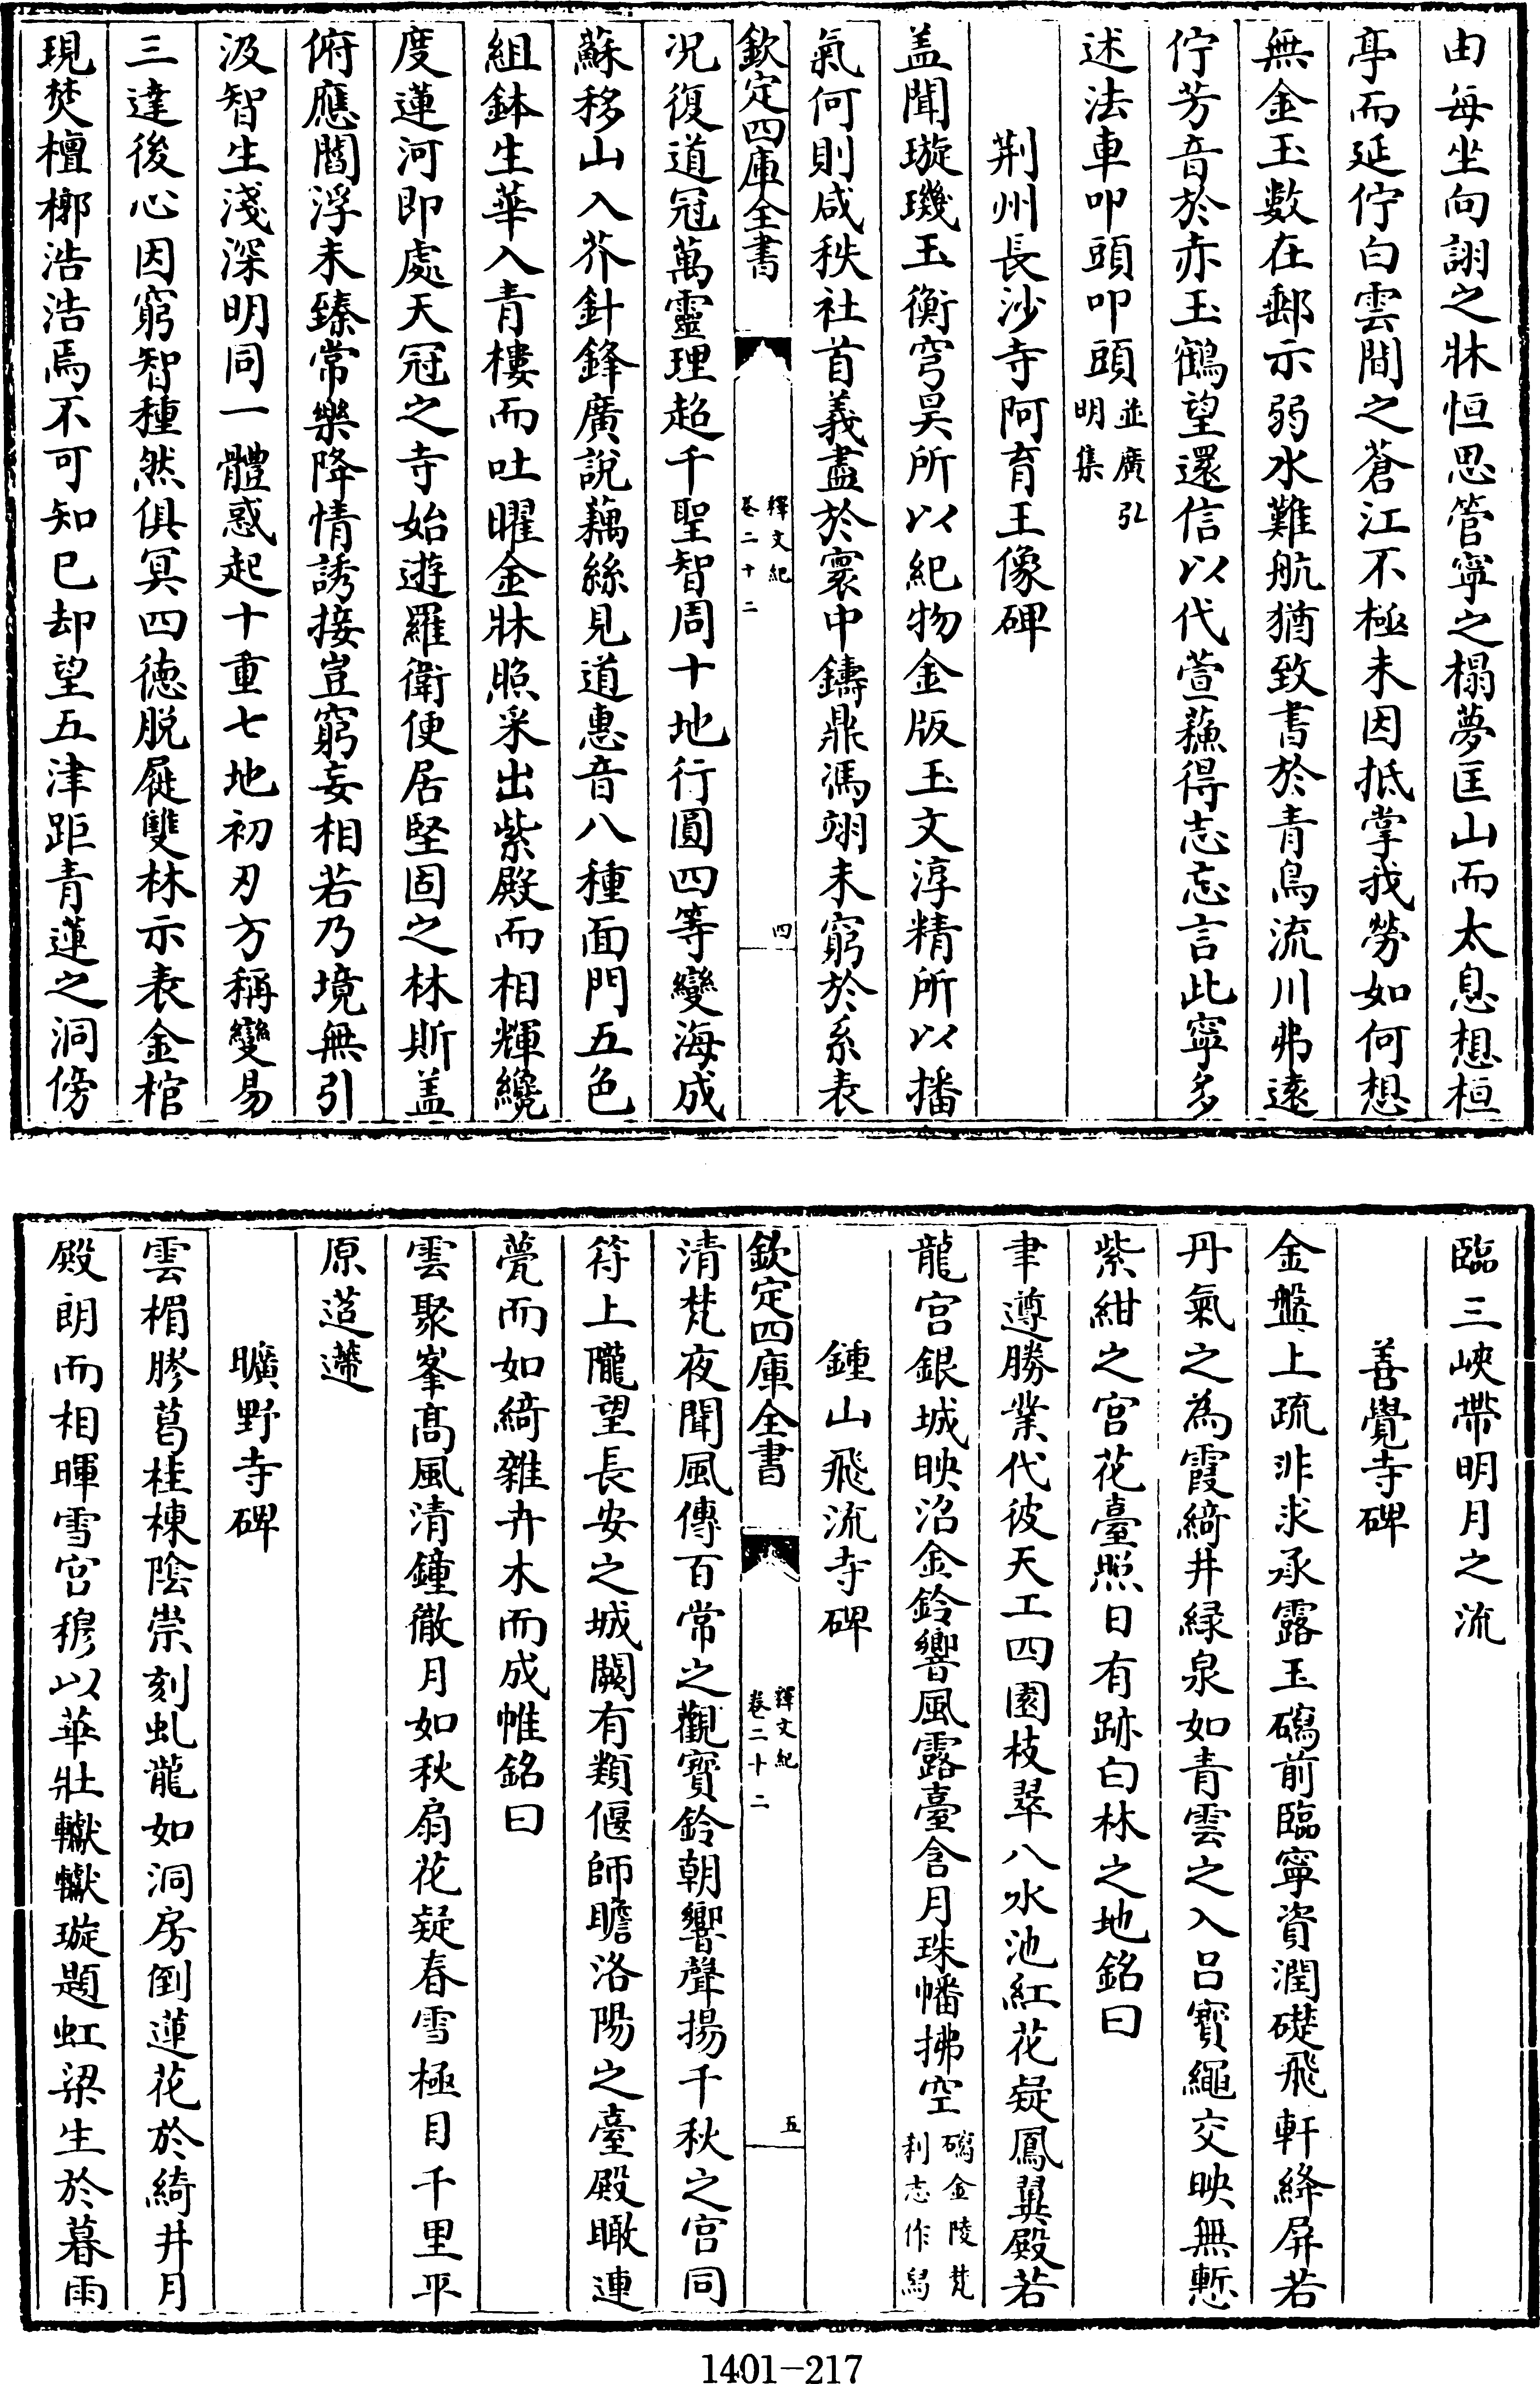 由每坐向詡之牀恒思管寧之榻夢匡山而太息想桓
亭而延佇白雲間之蒼江不極未因抵掌我勞如何想
無金玉數在郵示弱水難航猶致書於青鳥流川弗遠
佇芳音於赤玉鶴望還信以代萱蘓得志忘言此寧多
述法車叩頭叩頭並廣引明集
荆州長沙寺阿育王像碑
盖聞璇璣玉衡穹昊所以紀物金版玉文淳精所以播
氣何則咸秩社首義盡於寰中鑄鼎馮翊未窮於系表
欽定四庫全書
釋文紀
卷二十二
四
况復道冠萬靈理超千聖智周十地行圓四等變海成
蘇移山入芥針鋒廣說藕絲見道惠音八種面門五色
組鉢生華入青樓而吐曜金牀照采出紫殿而相輝纔
度蓮河即處天冠之寺始遊羅衛便居堅固之林斯盖
俯應閻浮未臻常樂降情誘接豈窮妄相若乃境無引
汲智生淺深明同一體惑起十重七地初刃方稱變易
三達後心因窮智種然俱冥四徳脱屣雙林示表金棺
現焚檀槨浩浩焉不可知已却望五津距青蓮之洞傍
臨三峽帶明月之流
善覺寺碑
金盤上疏非求承露玉碼前臨寧資潤礎飛軒絳屏若
丹氣之為霞綺井緑泉如青雲之入吕寳繩交映無慙
紫紺之宫花臺照日有跡白林之地銘曰
聿遵勝業代彼天工四園枝翠八水池紅花疑鳳翼殿若
龍宫銀城映沼金鈴響風露臺含月珠幡拂空碼金陵梵刹志作舄
鍾山飛流寺碑
欽定四庫全書
釋文紀
卷二十二
五
清梵夜聞風傳百常之觀寳鈴朝響聲揚千秋之宫同
符上隴望長安之城闕有類偃師瞻洛陽之臺殿瞰連
甍而如綺雜卉木而成帷銘曰
雲聚峯髙風清鐘徹月如秋扇花疑春雪極目千里平
原迢遰
曠野寺碑
雲楣膠葛桂棟陰崇刻虬龍如洞房倒蓮花於綺井月
殿朗而相暉雪宫穆以華壯轞轞璇題虹梁生於暮雨
1401-217